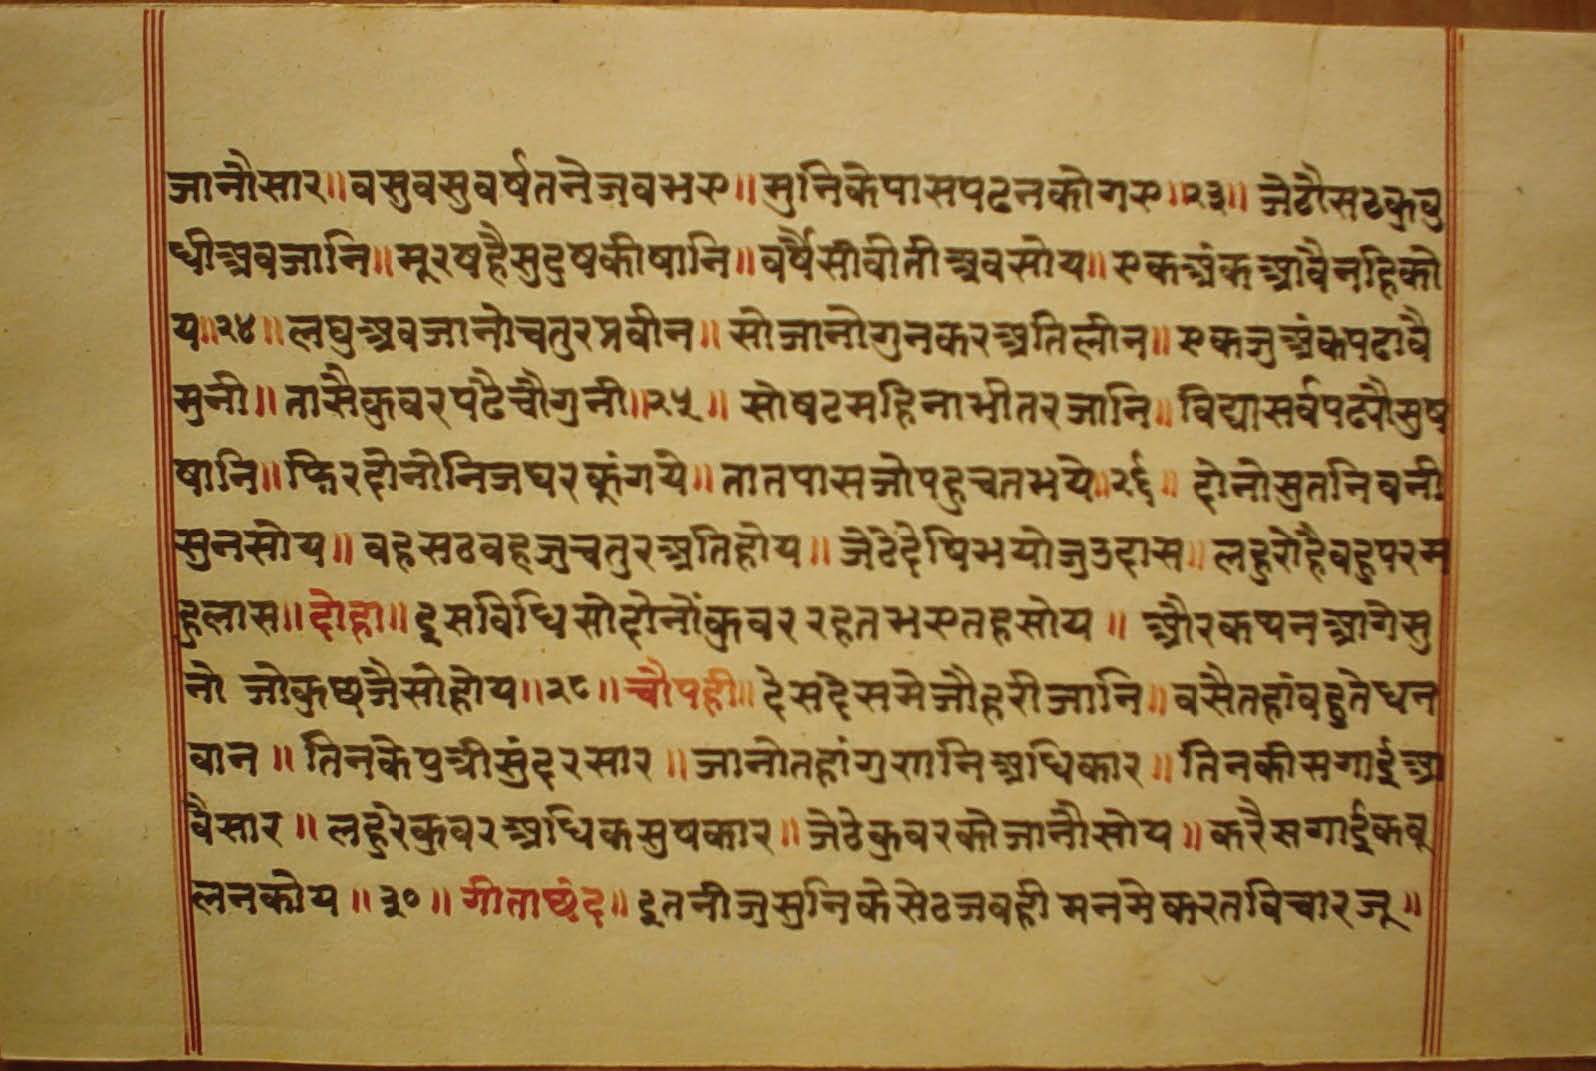 जानौसार॥वसुवसुवर्षतनेजवभए॥मुनिकेपासपढनकोगए॥२३॥जेठौसठकुवु
धीअवजानि॥मूरषहैसुदुषकीषानि॥वर्षैसीवीतीअवसोय॥एकअंकआवैनहिको
य॥२४॥लघुअवजानोचतुरप्रवीन॥सोजानोगुनकरअतिलीन॥एकजुअंकपढावै
मुनी॥तासैकुवरपढैचौगुनी॥२५॥सोषटमहिनाभीतरजानि॥विद्यासर्वपढ्यौसुष
षानि॥फिरदोनोनिजघरकूंगये॥तातपासजोपहुचतभये॥२६॥दोनोसुतनिवनी
सुनसोय॥वहसठवहजुचतुरअतिहोय॥जेठेदेषिभयोजुउदास॥लहुरोहैवहुपरम
हुलास॥दोहा॥इसविधिसोदोनोंकुवररहतभएतहसोय॥औरकथनआगेसु
नो जोकुछजैसोहोय॥२८॥चौपही॥देसदेसमेजौहरीजानि॥वसैतहांवहुतेधन
वान॥तिनकेपुत्रीसुंदरसार॥जानोतहांगुणनिअधिकार॥तिनकीसगाईआ
वैसार॥लहुरेकुवरअधिकसुषकार॥जेठेकुवरकोजानौसोय॥करैसगाईकवू
लनकोय॥३०॥गीताछंद॥इतनीजुसुनिकेसेठजवहीमनमेकरतविचारजू॥